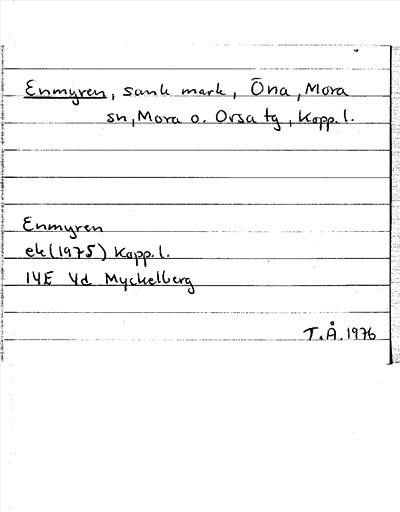 Enmyren, sank mark, Öna, Mora
sn, Mora o. Orsa tg, Kopp. l.
Enmyren
ek (1975) Kopp. l.
14E Vd Myckelberg
T.Å. 1976